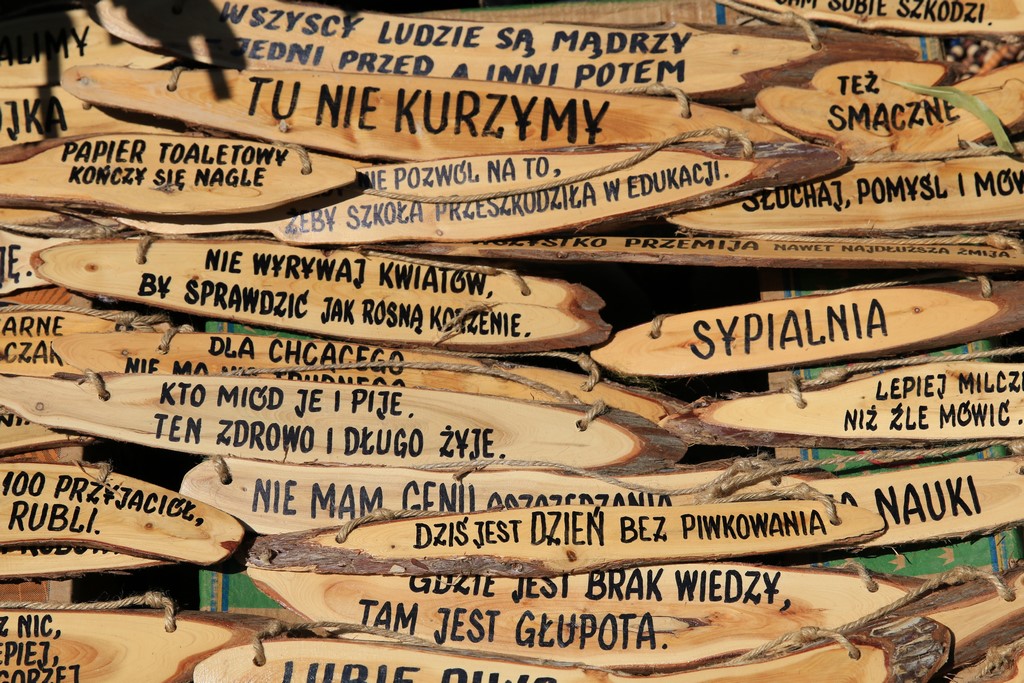 ALIMY
WSZYSCY LUDZIE SĄ MĄDRZY
JEDNI PRZED A INNI POTEM
SOBIE SZKODZI.
TU NIE KURZYMY
TEŻ
SMACZNE
OJKA
PAPIER TOALETOWY
KOŃCZY SIĘ NAGLE
NIE POZWÓL NA TO,
ŻEBY SZKOŁA PRZESZKODZIŁA W EDUKACJI.
SŁUCHAJ, POMYŚL I MÓW
PRZEMIJA NAWET NAJDŁUŻSZA ŻMIJA
Ę.
NIE WYRYWAJ KWIATÓW,
BY SPRAWDZIĆ JAK ROSNĄ KORZENIE.
SYPIALNIA
ARNE
CZAR
DLA CHCĄCEGO
NIE MA NIC TRUDNEGO
KTO MIÓD JE I PIJE.
TEN ZDROWO I DŁUGO ŻYJE.
LEPIEJ MILCZE
NIŻ ŹLE MÓWIĆ.
100 PRZYJACIÓŁ,
RUBLI.
NIE MAM GENU OSZCZĘDZANIA
NAUKI
DZIŚ JEST DZIEŃ BEZ PIWKOWANIA
GDZIE JEST BRAK WIEDZY,
TAM JEST GŁUPOTA.
Z NIC,
EPIEJ,
GORZEJ
LUBIĘ PIWO